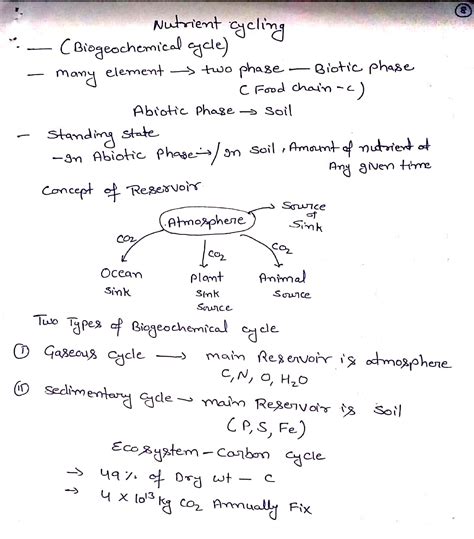 8
Nutrient cycling
— (Biogeochemical cycle)
— many element → two phase — Biotic phase
(Food chain - c)
Abiotic Phase → Soil
— Standing state
- In Abiotic Phase → / In Soil, Amount of nutrient at
Any given time
Concept of Reservoir
Atmosphere → Source
of
Sink
CO2 CO2 CO2
Ocean Plant Animal
Sink Sink Source
Source
Two Types of Biogeochemical cycle
(i) Gaseous cycle → main Reservoir is atmosphere
C, N, O, H2O
(ii) Sedimentary cycle → main Reservoir is Soil
(P, S, Fe)
Ecosystem - Carbon cycle
→ 49% of Dry wt — C
→ 4 × 10^13 kg CO2 Annually Fix